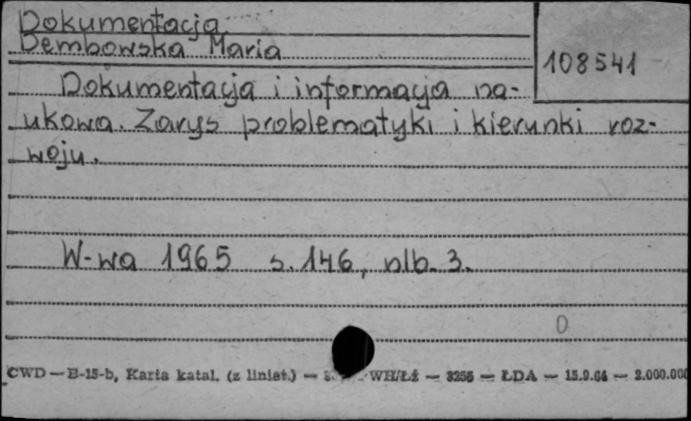 Dokumentacja
Dembowska Maria
108541
Dokumentacja i informacja na-
ukowa. Zarys problematyki i kierunki roz-
woju.
W-wa 1965 s. 146, nlb. 3.
0
CWD — B-15-b, Karta katal. (z liniat.) — WH/Łź — 3256 — ŁDA — 15.9.64 — 2.000.000